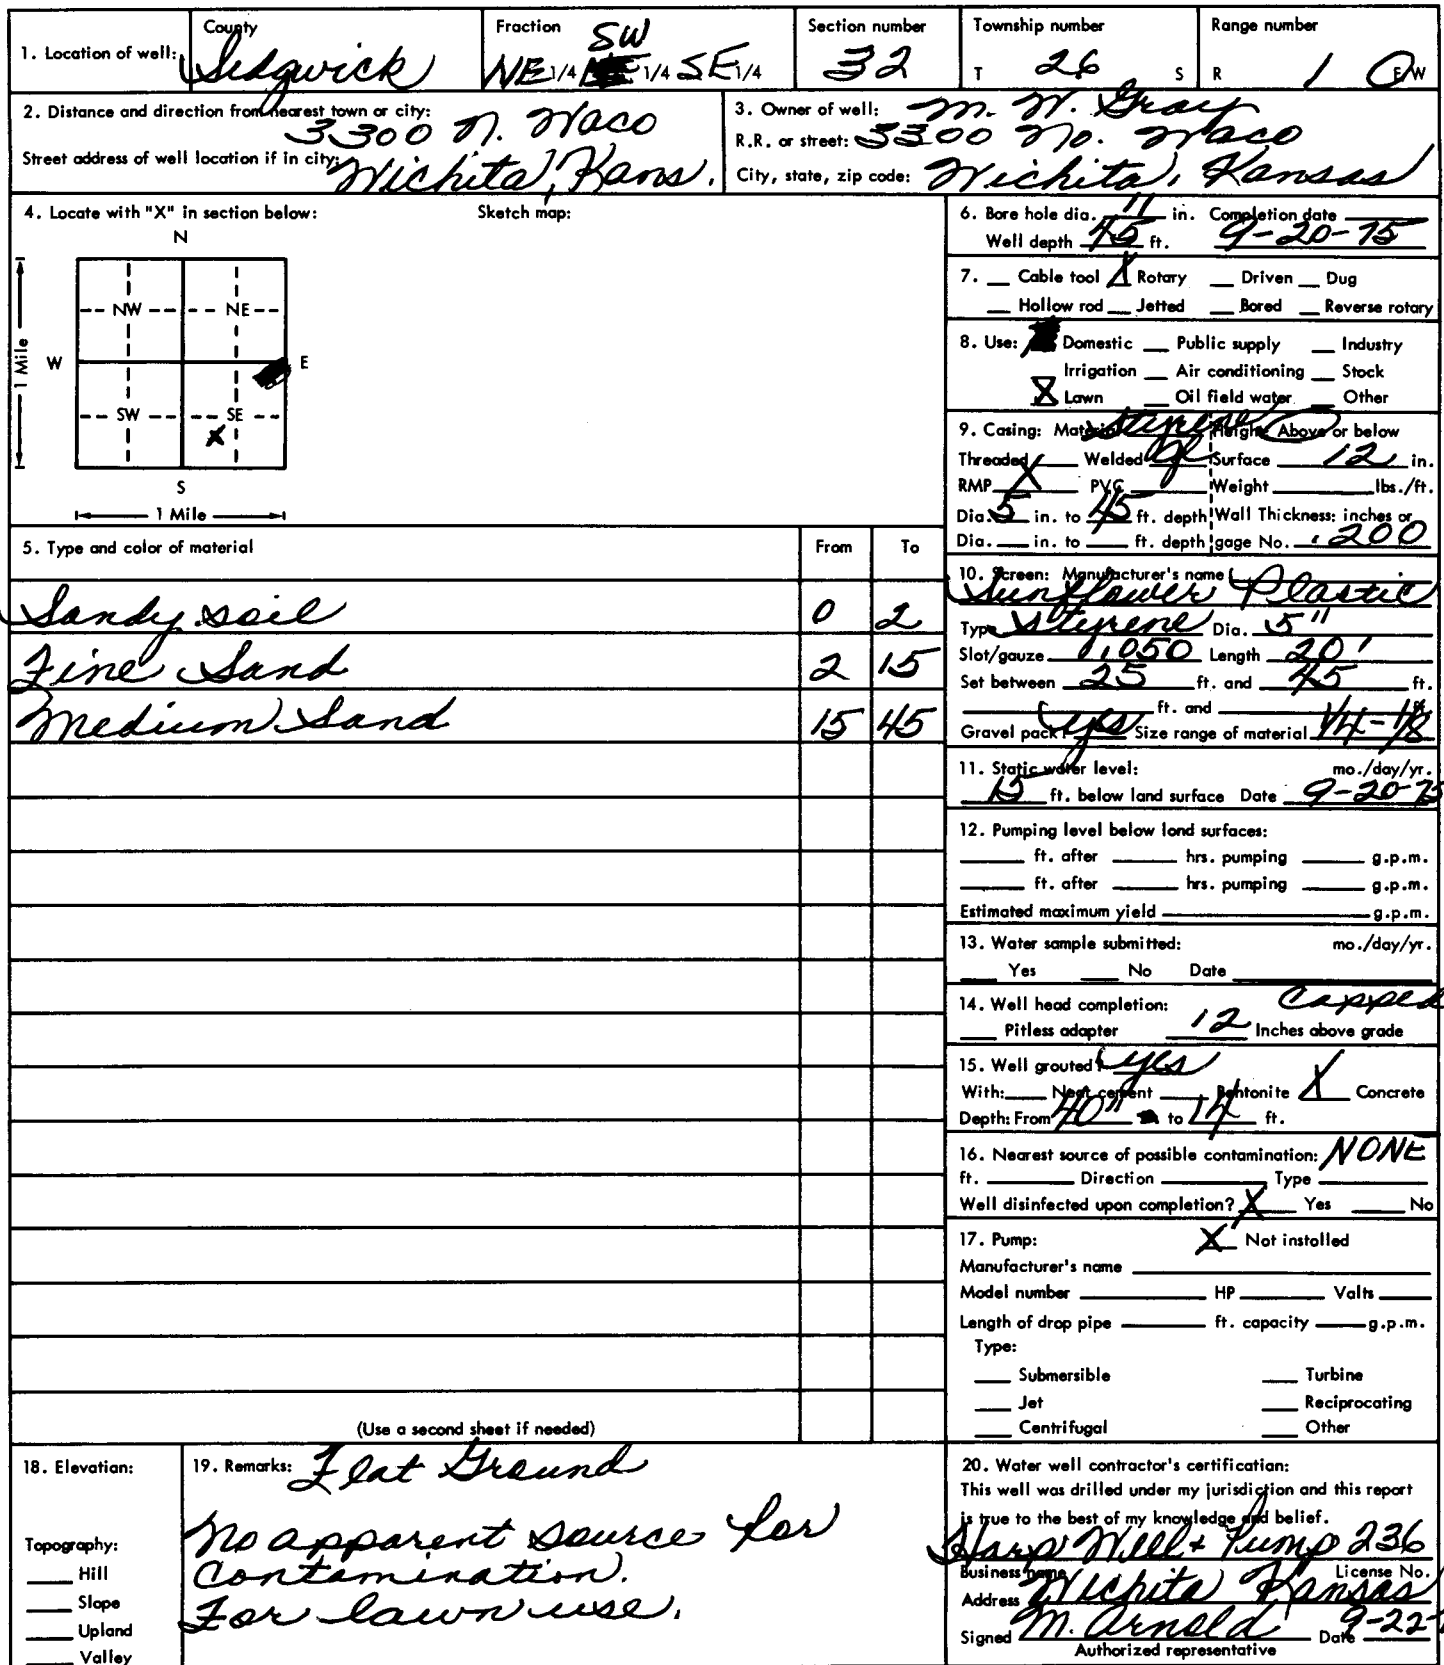 1. Location of well: County Sedgwick Fraction NE 1/4 SW 1/4 SE 1/4 Section number 32 Township number T 26 S Range number R 1 E/W
2. Distance and direction from nearest town or city: 3300 N. Waco
Street address of well location if in city: Wichita, Kans.
3. Owner of well: M. W. Gray
R.R. or street: 3300 No. Waco
City, state, zip code: Wichita, Kansas
4. Locate with "X" in section below: Sketch map:
N
NW NE
1 Mile W E
SW SE
X
S
1 Mile
5. Type and color of material From To
Sandy soil 0 2
Fine Sand 2 15
Medium Sand 15 45
(Use a second sheet if needed)
6. Bore hole dia. 11 in. Completion date
Well depth 45 ft. 9-20-75
7. Cable tool X Rotary Driven Dug
Hollow rod Jetted Bored Reverse rotary
8. Use: Domestic Public supply Industry
Irrigation Air conditioning Stock
X Lawn Oil field water Other
9. Casing: Material styrene Height: Above or below
Threaded Welded Surface 12 in.
RMP X PVC Weight lbs./ft.
Dia. 5 in. to 45 ft. depth Wall Thickness: inches or
Dia. in. to ft. depth gage No. .200
10. Screen: Manufacturer's name
Sunflower Plastic
Type Styrene Dia. 5"
Slot/gauze .050 Length 20'
Set between 25 ft. and 45 ft.
ft. and ft.
Gravel pack? yes Size range of material 1/4-1/8
11. Static water level: mo./day/yr.
15 ft. below land surface Date 9-20-75
12. Pumping level below land surfaces:
ft. after hrs. pumping g.p.m.
ft. after hrs. pumping g.p.m.
Estimated maximum yield g.p.m.
13. Water sample submitted: mo./day/yr.
Yes No Date
14. Well head completion: Capped
Pitless adapter 12 Inches above grade
15. Well grouted? yes
With: Neat cement Bentonite X Concrete
Depth: From 40" to 14 ft.
16. Nearest source of possible contamination: NONE
ft. Direction Type
Well disinfected upon completion? X Yes No
17. Pump: X Not installed
Manufacturer's name
Model number HP Volts
Length of drop pipe ft. capacity g.p.m.
Type:
Submersible Turbine
Jet Reciprocating
Centrifugal Other
18. Elevation:
Topography:
Hill
Slope
Upland
Valley
19. Remarks: Flat Ground
No apparent source for
Contamination.
For lawn use.
20. Water well contractor's certification:
This well was drilled under my jurisdiction and this report
is true to the best of my knowledge and belief.
Harp Well & Pump 236
Business name License No.
Address Wichita Kansas
Signed M. Arnold Date 9-22-
Authorized representative